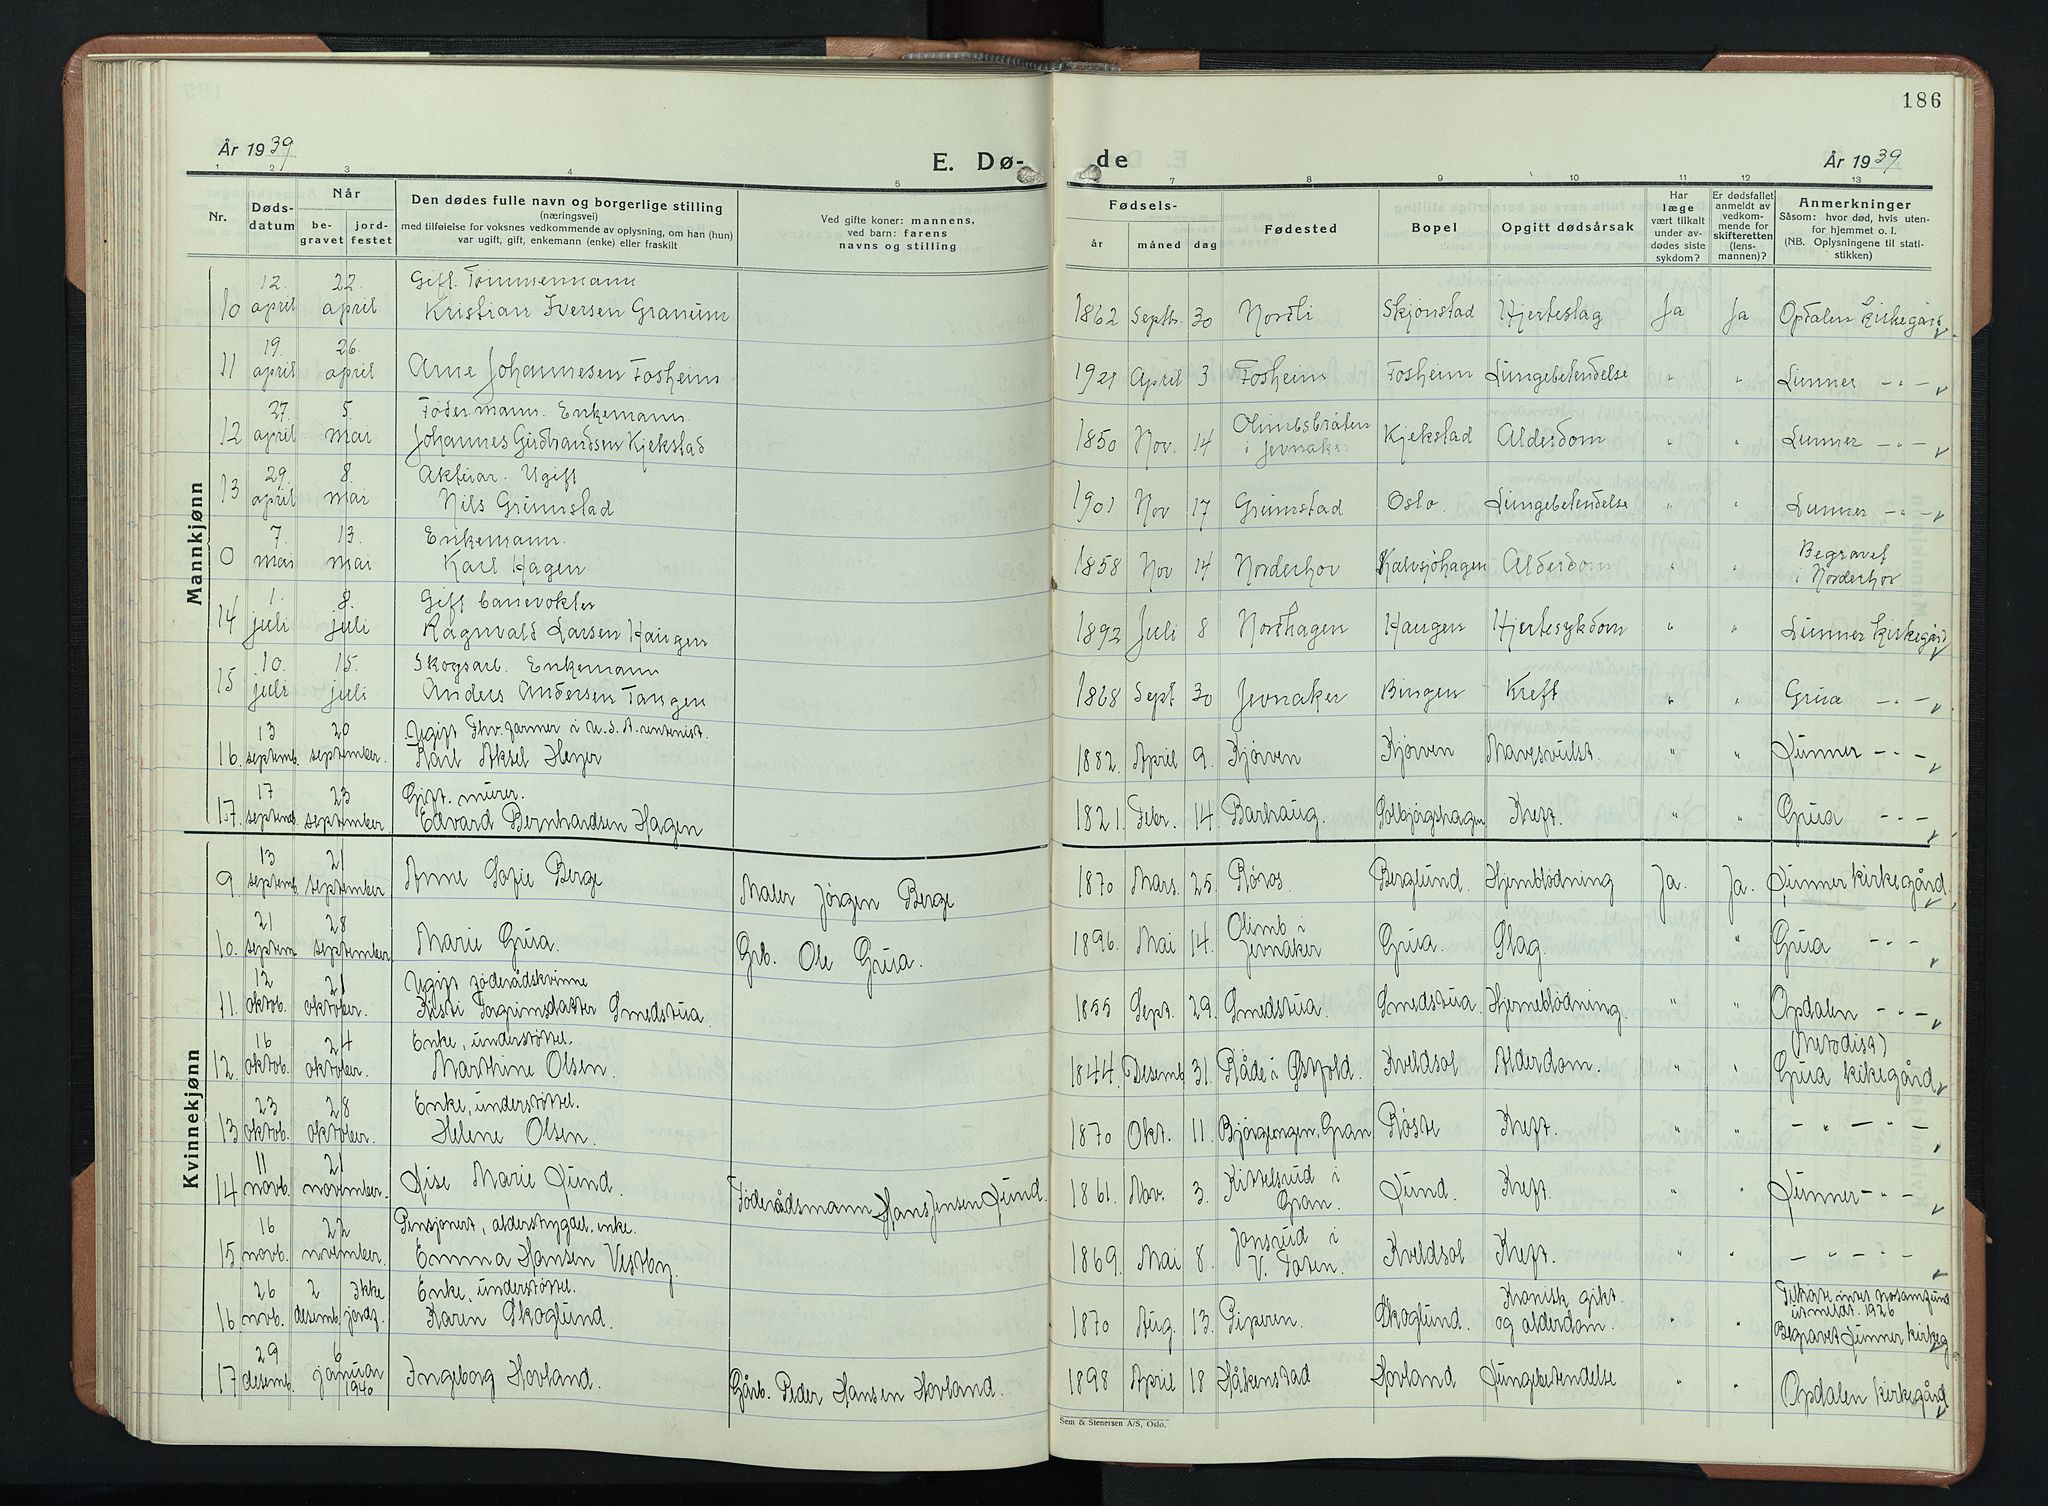 186
År 1939
E. Dø-
de
År 1939
1 2 3 4 5 7 8 9 10 11 12 13
Nr. Døds-datum Når be-gravet jord-festet Den dødes fulle navn og borgerlige stilling (næringsvei) med tilføielse for voksnes vedkommende av oplysning, om han (hun) var ugift, gift, enkemann (enke) eller fraskilt Ved gifte koner: mannens, ved barn: farens navns og stilling Fødsels- år måned dag Fødested Bopel Opgitt dødsårsak Har læge vært tilkalt under av-dødes siste sykdom? Er dødsfallet anmeldt av vedkom-mende for skifteretten (lens-mannen)? Anmerkninger Såsom: hvor død, hvis uten-for hjemmet o. l. (NB. Oplysningene til stati-stikken)
Mannkjønn
10 12. april 22. april Gift. Tømmermann Kristian Iversen Granum 1862 Septbr. 30 Nordli Skjønstad Hjerteslag Ja Ja Opdalen kirkegård
11 19. april 26. april Arne Johannesen Fosheim 1921 April 3 Fosheim Fosheim Lungebetendelse " " Lunner - " -
12 27. april 5. mai Fødermann. Enkemann. Johannes Gudbrandsen Kjekstad 1850 Nov. 14 Olimbsbråten i Jevnaker Kjekstad Alderdom " " Lunner - " -
13 29. april 8. mai Ugift Nils Grimstad 1901 Nov 17 Grimstad Oslo. Lungebetendelse " " Lunner - " -
0 7. mai 13. mai Enkemann. Karl Hagen 1858 Nov 14 Norderhov Kalvsjøhagen Alderdom " " Begravet i Norderhov
14 1. juli 8. juli Gift banevokter Ragnvald Larsen Haugen 1892 Juli 8 Nordhagen Haugen Hjertesykdom " " Lunner kirkegård
15 10. juli 15. juli Skogsarb. Enkemann Anders Andersen Tangen 1868 Sept 30 Jevnaker Bingen Kreft " " Grua - " -
16. 13 septemb. 20 september. Ugift Fhv. farmer i U.S.A. rentenist. Karl Aksel Heyer 1882. April 9. Kjørven Kjørven Mavesvulst " " Lunner - " -
17. 17 septemb. 23 september. Gift. murer. Edvard Bernhardsen Hagen 1821. Febr. 14. Barhaug. Solbjørgshagen Kreft. " " Grua - " -
Kvinnekjønn
9. 13 septemb. 21 september Anne Sofie Berge Maler Jørgen Berge 1870 Mars. 25. Røros. Berglund. Hjernblødning Ja. Ja. Lunner kirkegård.
10. 21 septem. 28 september Marie Grua. Grb. Ole Grua. 1896. Mai 14. Olimb i Jevnaker Grua. Slag. " Grua - " -
11. 12 oktob. 21 oktober. Ugift føderådskvinne Kisti Torgrimsdatter Smedstua. 1855 Sept. 29. Smedstua. Smedstua Hjerneblødning. " " Opdalen - " -
12. 16 oktob. 24 oktober. Enke, understøttet. Marthine Olsen. 1844. Desemb 31. Råde i Østfold. Kveldsol Alderdom. " " (Metodist) Grua kikegård
13 23 oktob. 28 oktober. Enke, understøttet. Helene Olsen. 1870 Okt. 11. Bjørgeengen, Gran Røste Kreft. " " - " - " -
14 11 novb. 21 november. Lise Marie Lund. Føderådsmann Hans Jensen Lund. 1861. Nov. 3. Kittelsrud i Gran. Lund. Kreft. " " Lunner - " -
15 16 novb. 22 november. Pensjonert, alderstrygdet. enke. Emma Hansen Vestby. 1869. Mai 8. Jonsrud i V. Toten. Kveldsol Kreft. " " - " - " -
16 26 nov. 2 desemb. Ikke jordf. Enke, understøttet. Karen Skoglund. 1870 Aug. 13. Piperen. Skoglund. Kronisk gikt. og alderdom. " " utmeldt. 1926 Begravet Lunner kirkeg
17 29 desemb. 6 januar 1940 Ingeborg Hovland. Gårb. Peder Hansen Hovland. 1898 April 18 Håkenstad Hovland Lungebetendelse " " Opdalen kirkegård
Sem & Stenersen A/S, Oslo.